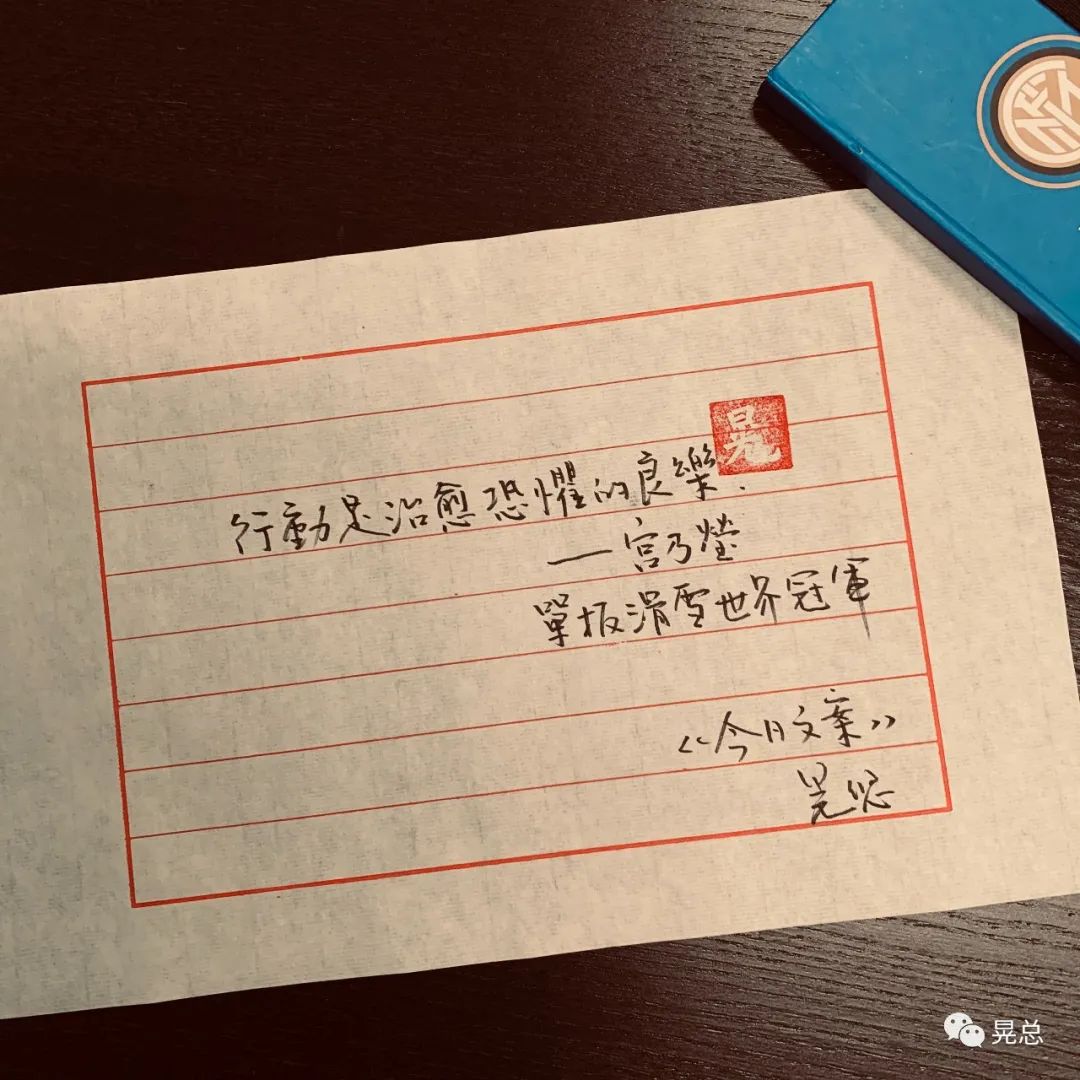 晃
行動是治愈恐懼的良樂.
—宮乃瑩
單板滑雪世界冠軍
《今日文案》
晃总
晃总